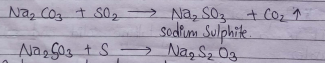 Na₂CO₃ + SO₂ ⟶ Na₂SO₃ + CO₂ ↑
sodium Sulphite
Na₂SO₃ + S ⟶ Na₂S₂O₃